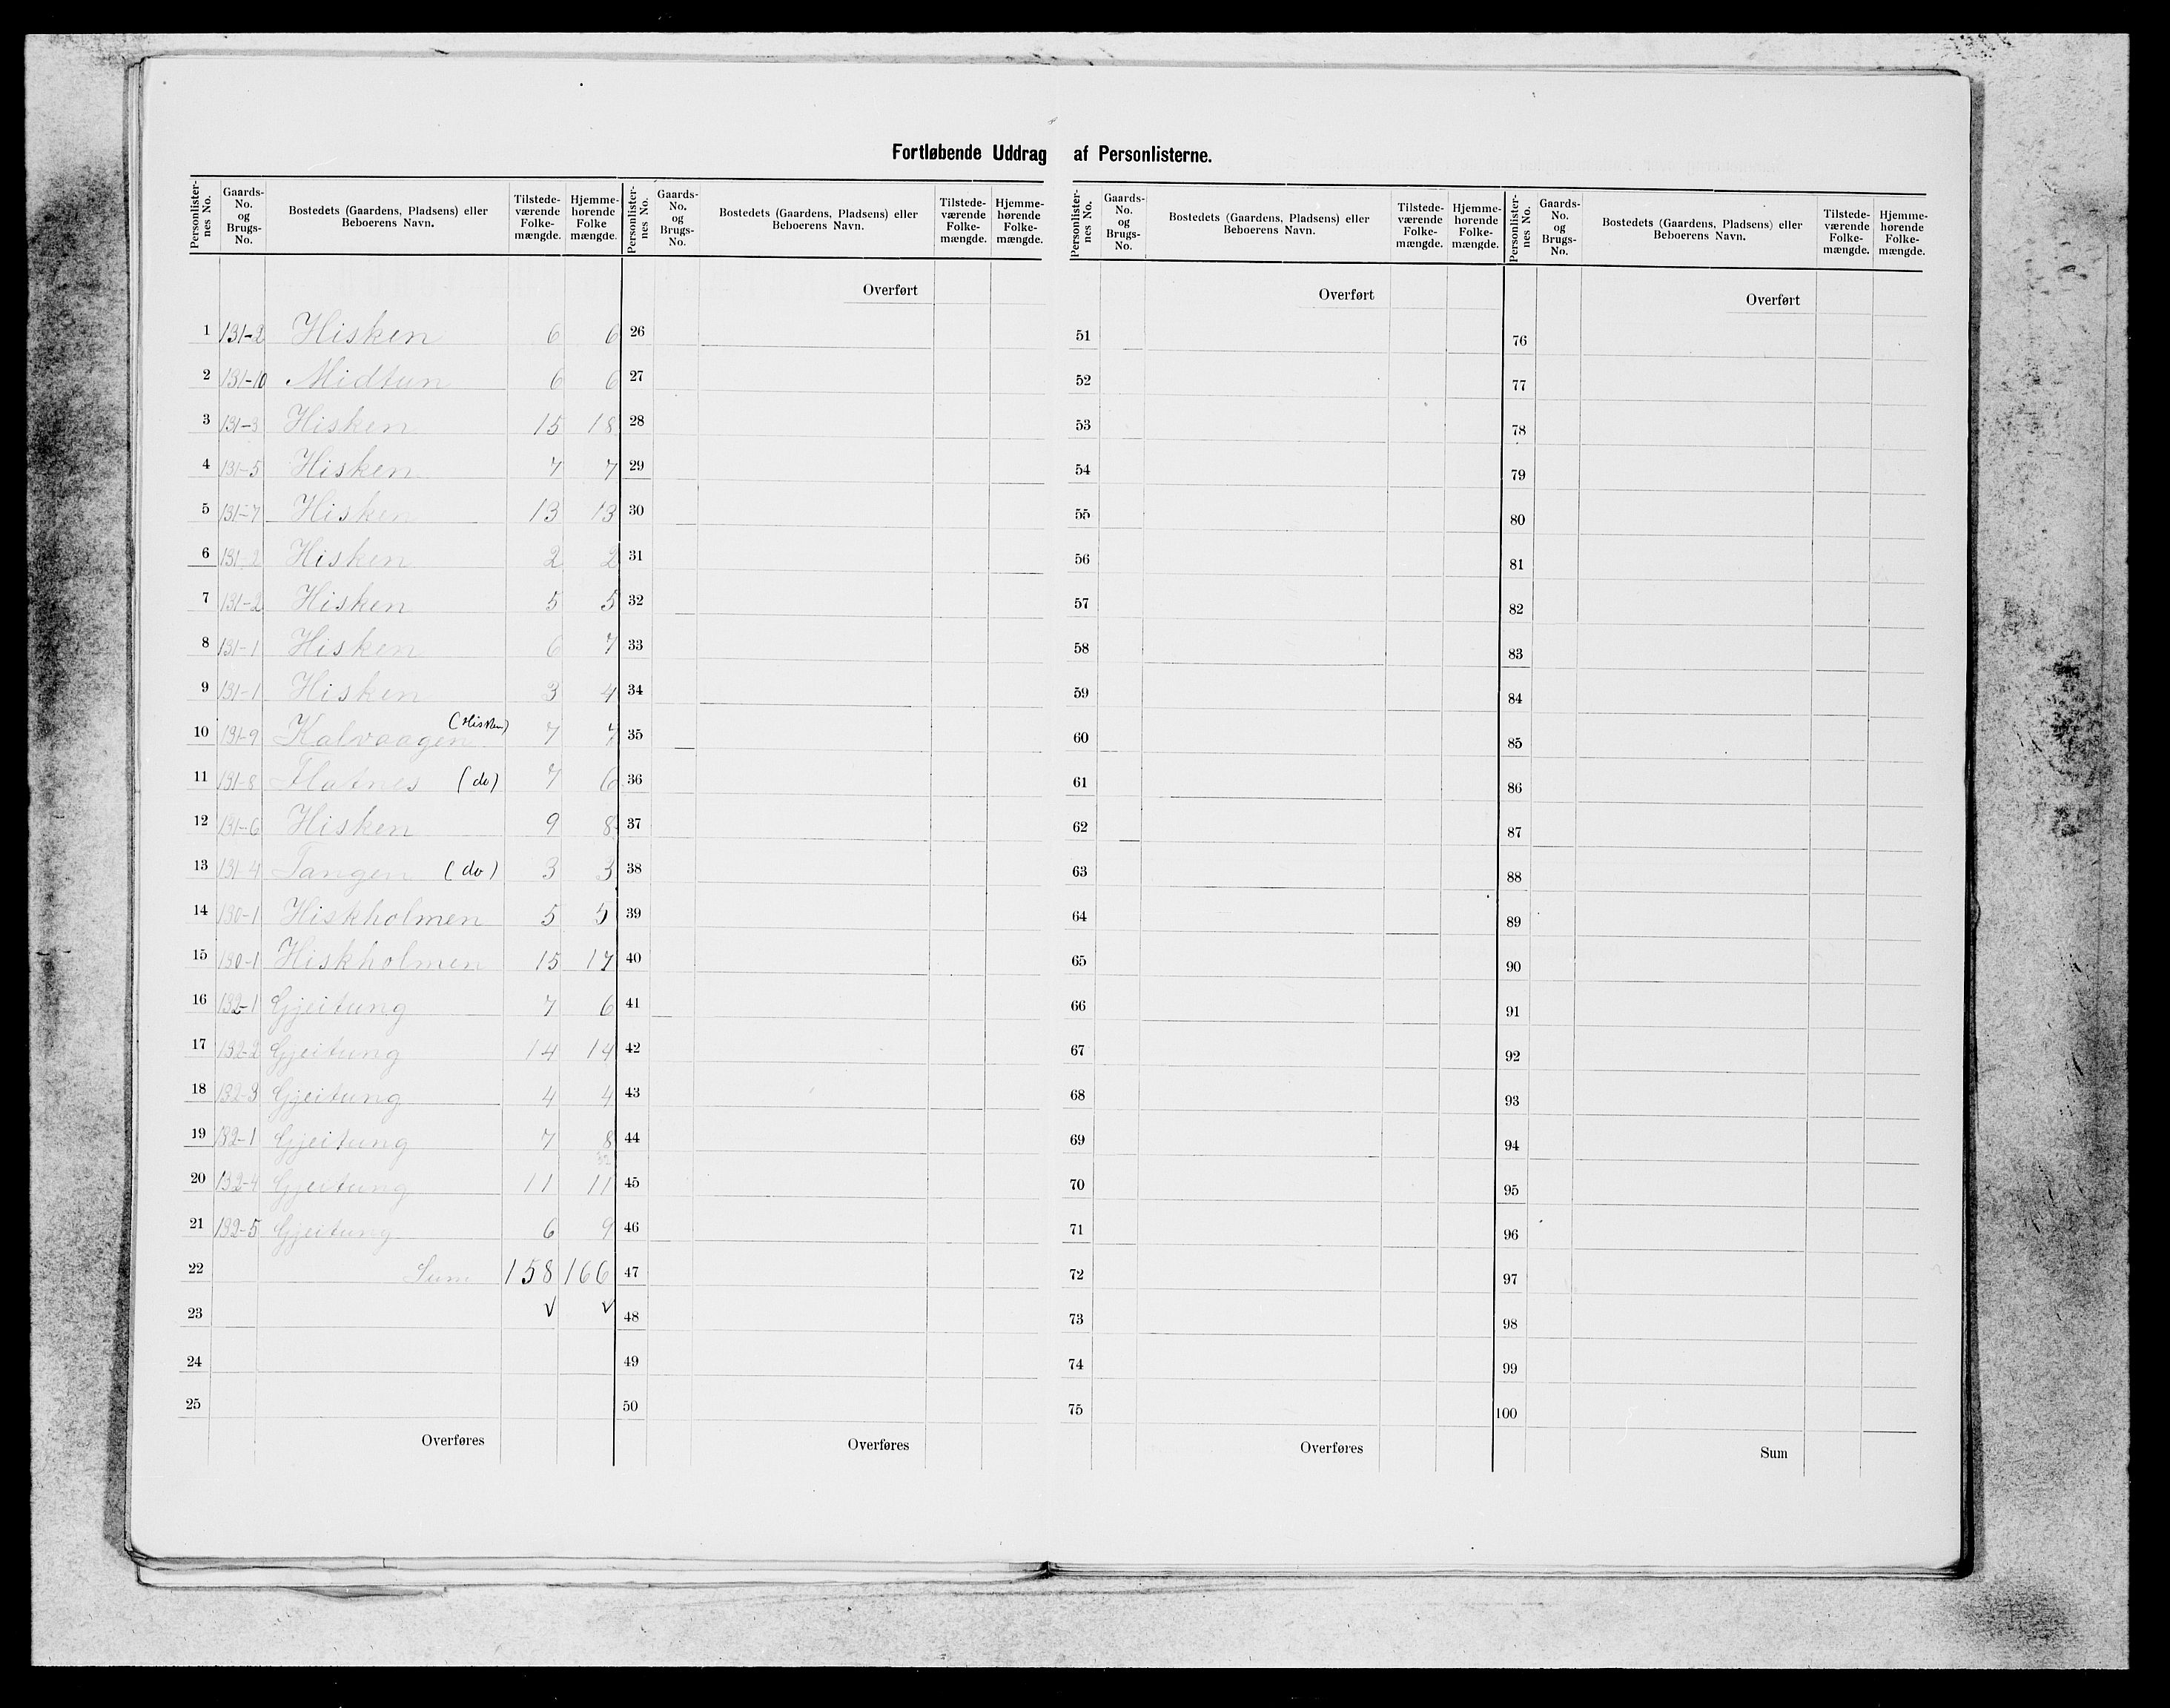 Fortløbende Uddrag af Personlisterne.
Personlister-nes No. | Gaards-No. og Brugs-No. | Bostedets (Gaardens, Pladsens) eller Beboerens Navn. | Tilstede-værende Folke-mængde. | Hjemme-hørende Folke mængde.
Personlister-nes No. | Gaards-No. og Brugs-No. | Bostedets (Gaardens, Pladsens) eller Beboerens Navn. | Tilstede-værende Folke-mængde. | Hjemme-hørende Folke-mængde.
Personlister-nes No. | Gaards-No. og Brugs-No. | Bostedets (Gaardens, Pladsens) eller Beboerens Navn. | Tilstede-værende Folke-mængde. | Hjemme-hørende Folke-mængde.
Personlister-nes No. | Gaards-No. og Brugs-No. | Bostedets (Gaardens, Pladsens) eller Beboerens Navn. | Tilstede-værende Folke-mængde. | Hjemme-hørende Folke-mængde.
1 131-2 Hisken 6 6
2 131-10 Midtun 6 6
3 131-3 Hisken 15 18
4 131-5 Hisken 7 7
5 131-7 Hisken 13 13
6 131-2 Hisken 2 2
7 131-2 Hisken 5 5
8 131-1 Hisken 6 7
9 131-1 Hisken 3 4
10 131-9 Kalvaagen (Hisken) 7 7
11 131-8 Flatnes (do) 7 6
12 131-6 Hisken 9 8
13 131-4 Tangen (do) 3 3
14 130-1 Hiskholmen 5 5
15 130-1 Hiskholmen 15 17
16 132-1 Gjeitung 7 6
17 132-2 Gjeitung 14 14
18 132-3 Gjeitung 4 4
19 132-1 Gjeitung 7 8
20 132-4 Gjeitung 11 11
21 132-5 Gjeitung 6 9
22 Sum 158 166
23 √ √
24
25
Overføres
Overført
26
27
28
29
30
31
32
33
34
35
36
37
38
39
40
41
42
43
44
45
46
47
48
49
50
Overføres
Overført
51
52
53
54
55
56
57
58
59
60
61
62
63
64
65
66
67
68
69
70
71
72
73
74
75
Overføres
Overført
76
77
78
79
80
81
82
83
84
85
86
87
88
89
90
91
92
93
94
95
96
97
98
99
100
Sum